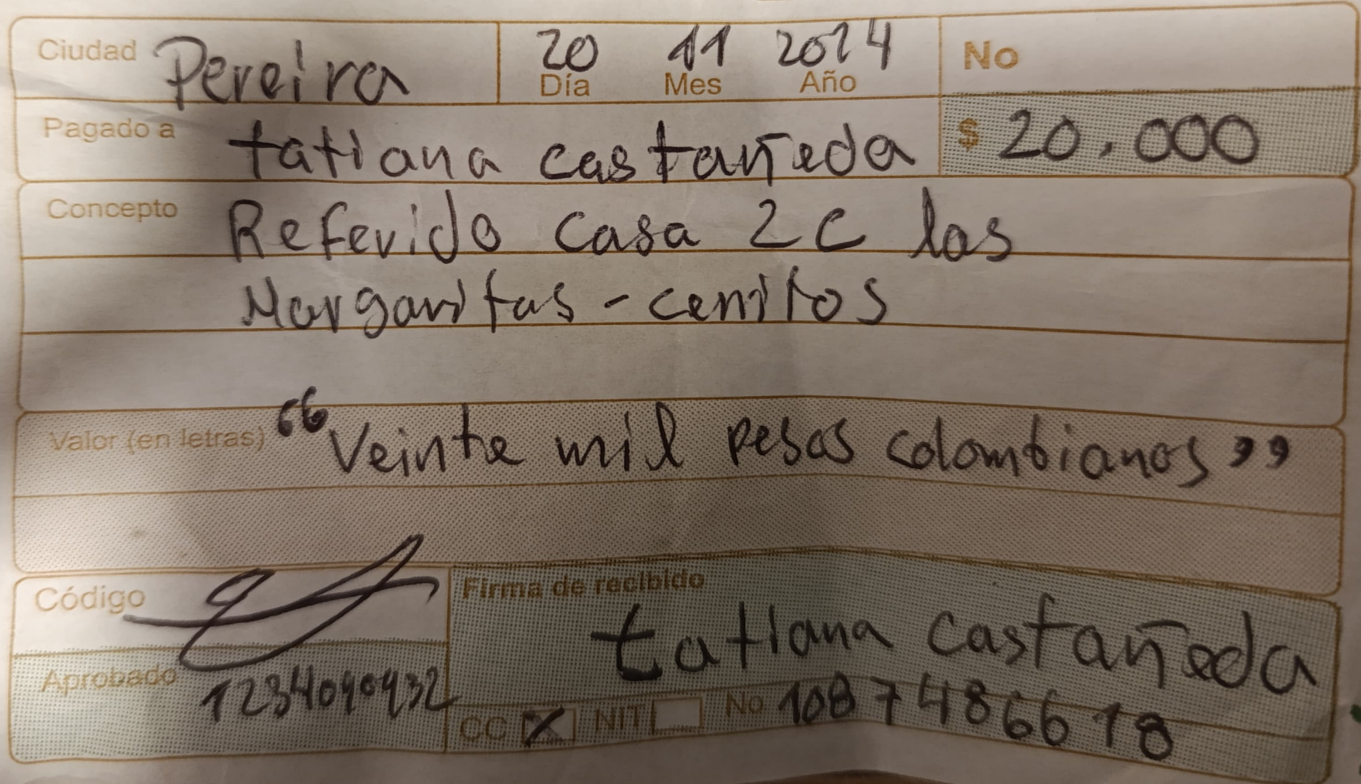 Ciudad Pereira 20 11 2024 No
Día Mes Año
Pagado a tatiana castañeda $ 20.000
Concepto Referido casa 2C las
Margaritas - cerritos
Valor (en letras) “Veinte mil pesos colombianos”
Código Firma de recibido
tatiana castañeda
Aprobado 1234090932
CC X NIT No 1087486618